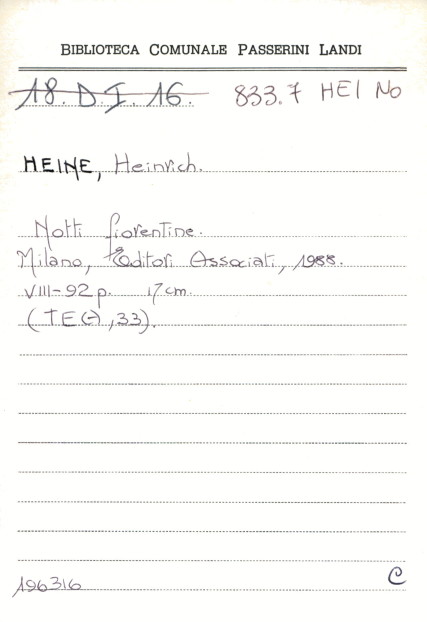 BIBLIOTECA COMUNALE PASSERINI LANDI
18. D. I. 16. 833.7 HEI No
HEINE, Heinrich.
Notti fiorentine.
Milano, Editori Associati, 1988.
VIII-92 p. 17 cm.
(TEA, 33).
196316 C